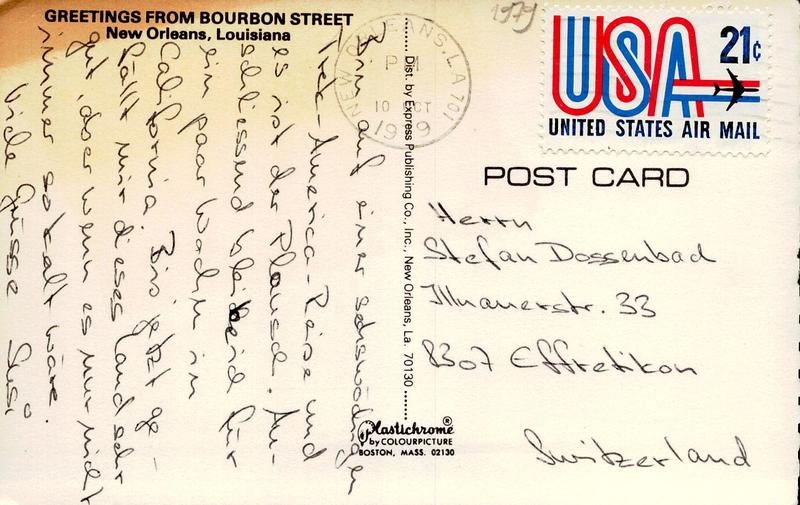 GREETINGS FROM BOURBON STREET
New Orleans, Louisiana
Bin auf einer
Trek-America-Reise und
es ist der Plausch. An-
schliessend bleibe ich für
ein paar Wochen in
California. Bis jetzt ge-
fällt mir dieses Land sehr
gut, aber wenn es nur nicht
immer so kalt wäre.
Viele Grüsse Susi
Dist. by Express Publishing Co., Inc., New Orleans, La. 70130
NEW ORLEANS, LA 701
PM
10 OCT
1979
1979
USA 21¢
UNITED STATES AIR MAIL
POST CARD
Herrn
Stefan Dossenbach
Illnauerstr. 33
8307 Effretikon
Switzerland
Plastichrome®
by COLOURPICTURE
BOSTON, MASS. 02130